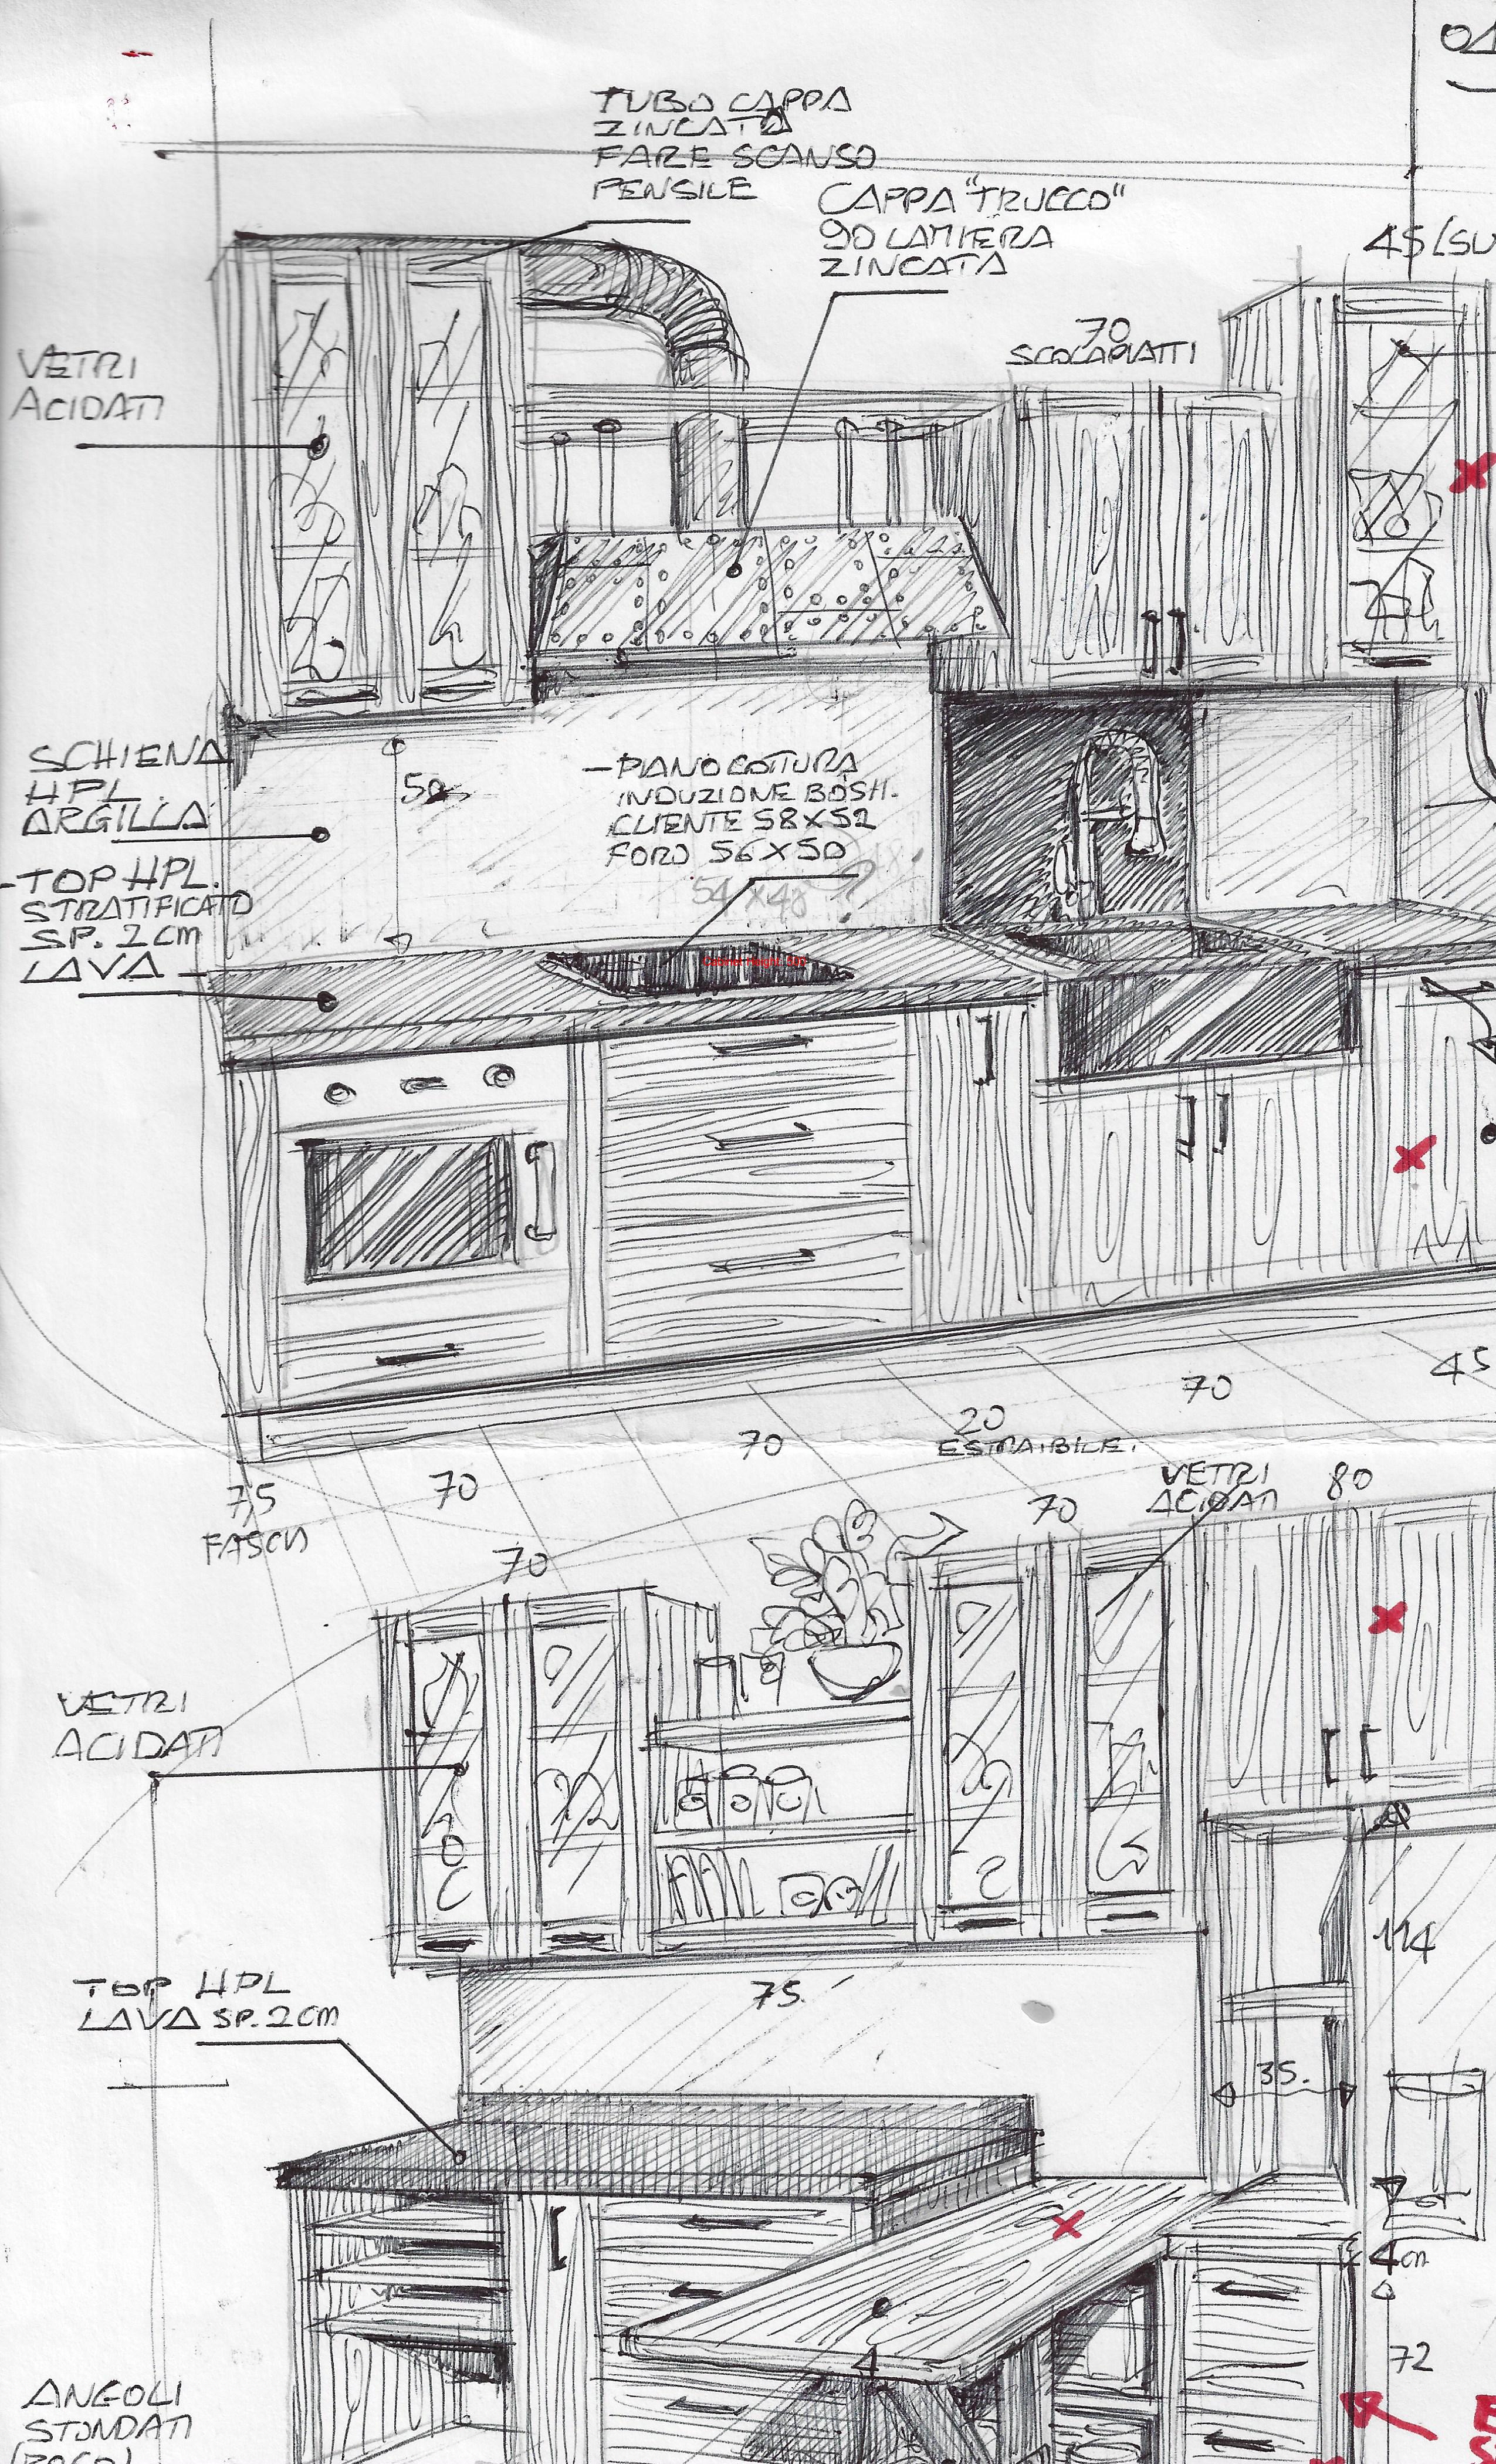 TUBO CAPPA
ZINCATA
FARE SCANSO
PENSILE
CAPPA "TRUCCO"
90 LAMIERA
ZINCATA
45 (SU
70
SCOLAPIATTI
VETRI
ACIDATI
SCHIENA
HPL
ARGILLA
50
- PIANO COTTURA
INDUZIONE BOSH.
CLIENTE 58X52
FORO 56X50
54X48
- TOP HPL.
STRATIFICATO
SP. 2 cm
LAVA -
45
70
20
ESTRAIBILE.
70
70
7,5
FASCIA
VETRI
ACIDATI
80
70
70
VETRI
ACIDATI
114
TOP HPL
LAVA SP. 2 cm
75.
35.
4 cm
72
4
ANGOLI
STONDATI
(POCO)